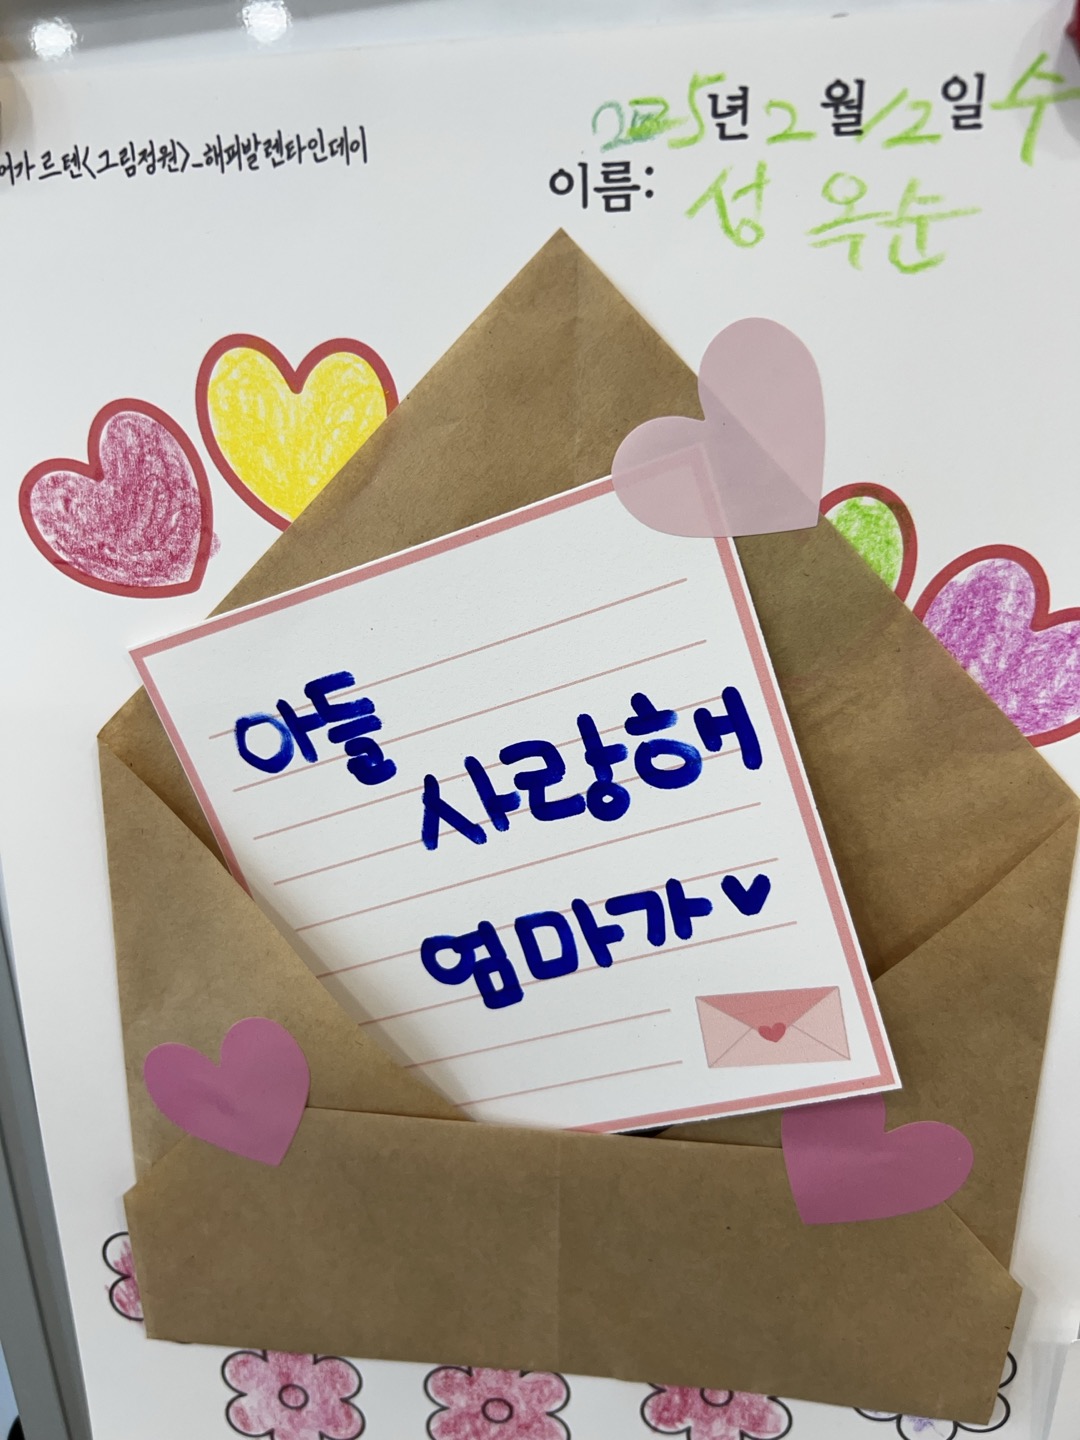 어가르텐<그림정원>_해피발렌타인데이
2025년 2월 12일 수
이름: 성옥순
아들
사랑해
엄마가♥